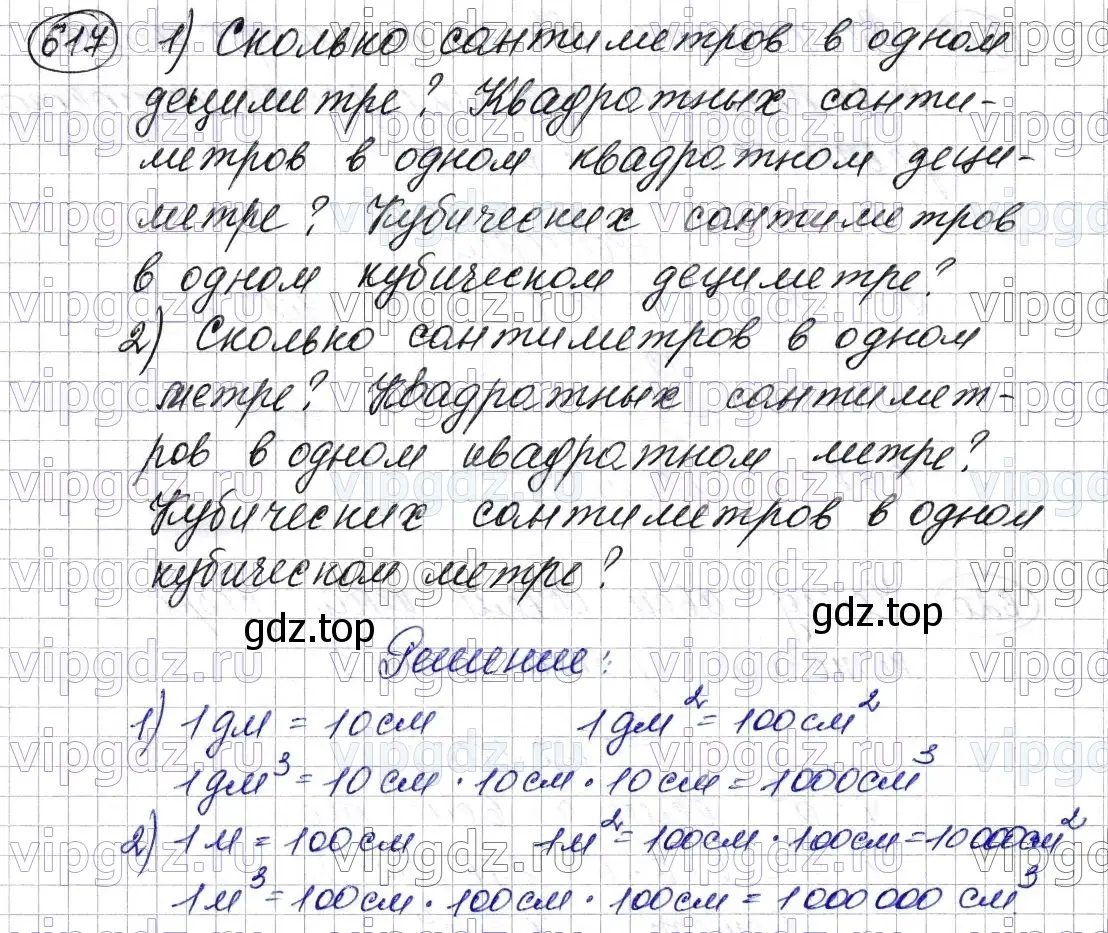 617 1) Сколько сантиметров в одном
дециметре? Квадратных санти-
метров в одном квадратном деци-
метре? Кубических сантиметров
в одном кубическом дециметре?
2) Сколько сантиметров в одном
метре? Квадратных сантимет-
ров в одном квадратном метре?
Кубических сантиметров в одном
кубическом метре?
gdz.top gdz.top
Решение:
1) 1 дм = 10 см 1 дм² = 100 см²
1 дм³ = 10 см · 10 см · 10 см = 1000 см³
2) 1 м = 100 см 1 м² = 100 см · 100 см = 10000 см²
1 м³ = 100 см · 100 см · 100 см = 1 000 000 см³
vipgdz.ru